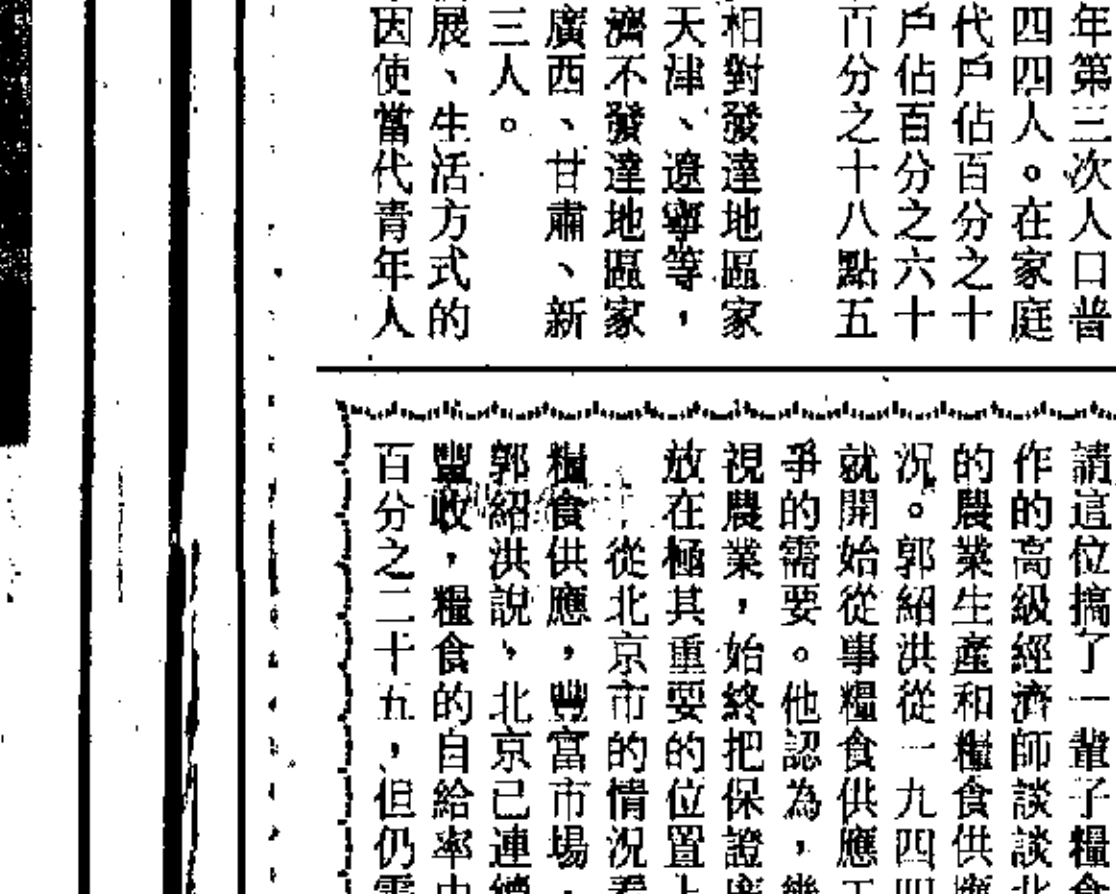 年第三次人口普
四四人。在家庭
代戶佔百分之十
戶佔百分之六十
百分之十八點五
相對發達地區家
天津、遼寧等，
濟不發達地區家
廣西、甘肅、新
三人。
展、生活方式的
因使當代青年人
請這位搞了一輩子糧食
作的高級經濟師談談北
的農業生產和糧食供應
況。郭紹洪從一九四四
就開始從事糧食供應工
爭的需要。他認為，幾
視農業，始終把保證
放在極其重要的位置上
從北京市的情況看
糧食供應，豐富市場，
郭紹洪說、北京已連續
豐收，糧食的自給率由
百分之二十五，但仍需